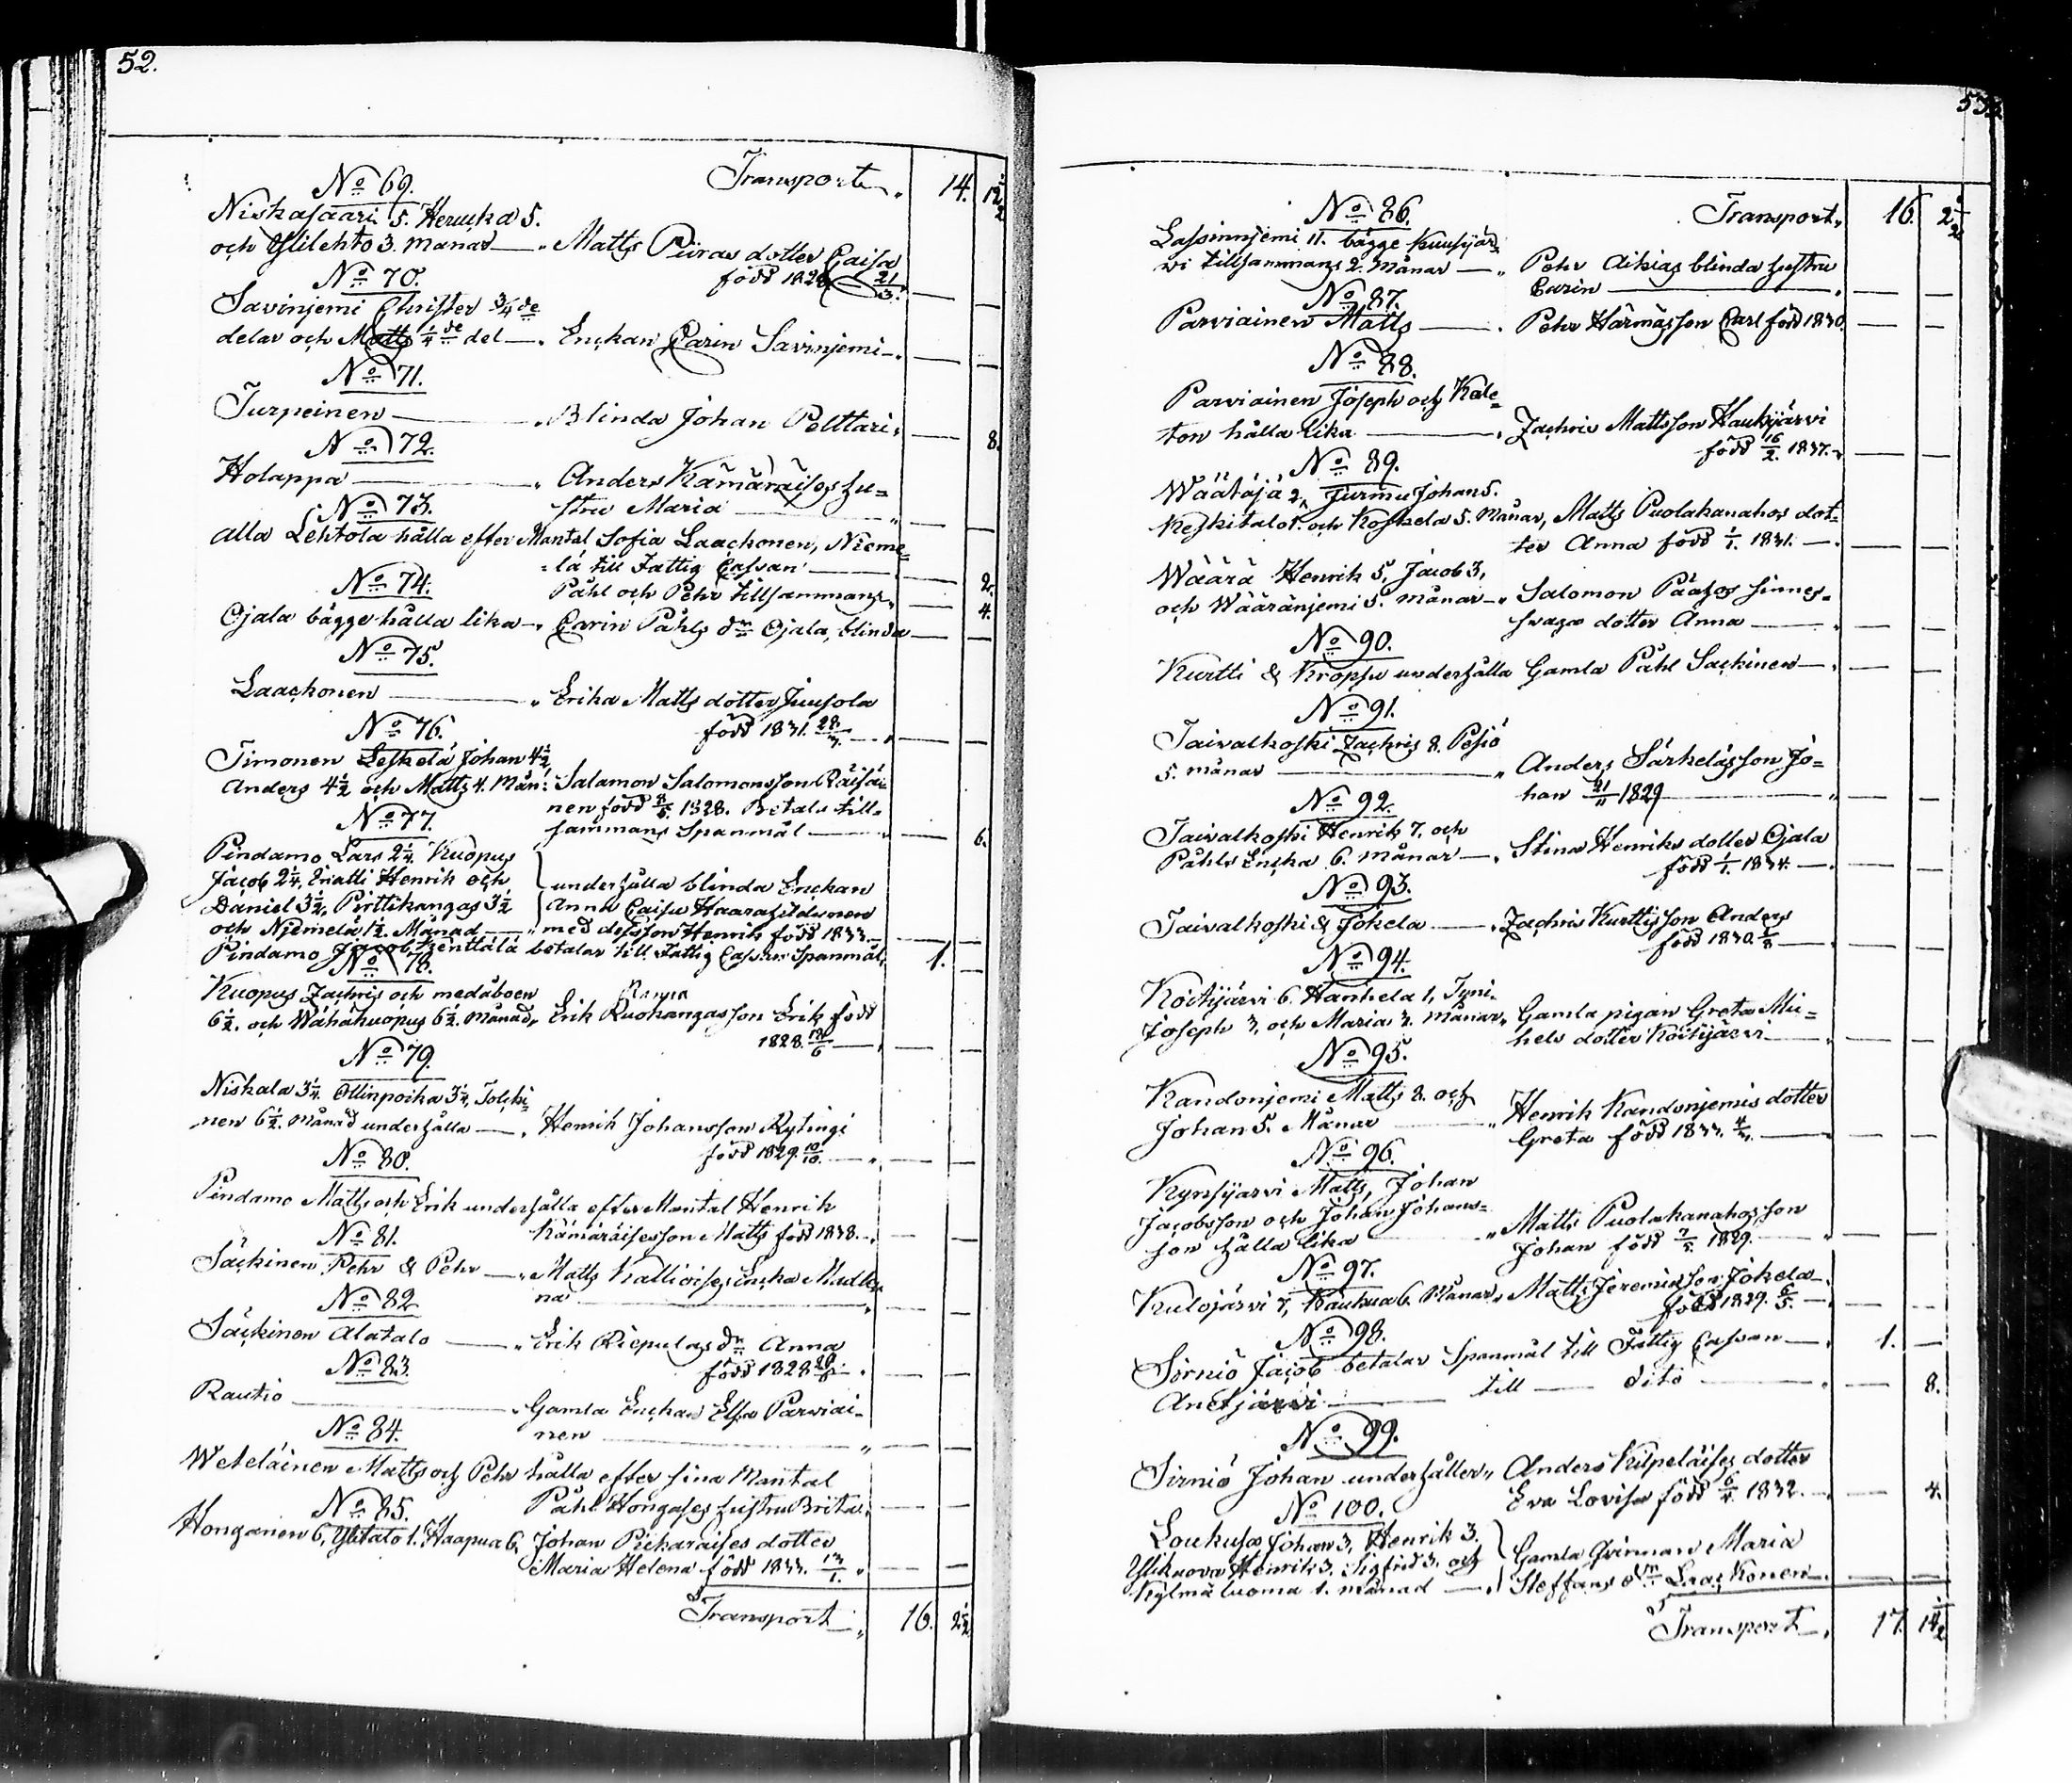 52.
Transport 14. 12 1/2
No 69.
Niskasaari 5. Heruka 5.
och Ylilehto 3. Månad — Matts Piiras dotter Caisa
född 1828 21/3.
No 70.
Savinjemi Christer 3/4 de
delar och Matts 1/4 de del — Enckan Carin Savinjemi —
No 71.
Turpeinen — Blinda Johan Pelttari 8.
No 72.
Holappa — Anders Kämäräises hu=
stru Maria —
No 73.
Alla Lehtola hålla efter Mantal Sofia Laackonen, Nieme=
=lä till Fattig Cassan — 2.
No 74.
Påhl och Pehr tillsammans 4.
Ojala bägge hålla lika — Carin Påhls dr Ojala, blinda —
No 75.
Laackonen — Erika Matts dotter Juusola
född 1831. 28/3. —
No 76.
Timonen Leskelä Johan 4 1/2,
Anders 4 1/2 och Matts 4. Mån: Salamon Salomonsson Räisä=
nen född 8/5. 1828. Betala till=
sammans Spanmål — 6.
No 77.
Pindamo Lars 2 1/4, Kuopus
Jacob 2 1/4, Eriatti Henrik och
Daniel 3 1/2, Pirttikangas 3 1/2
och Njemelä 1 1/2. Månad —
underhålla blinda Enckan
Anna Caisa Haarahiltunen
med dess son Henrik född 1833. —
Pindamo Jacob Kenttälä betalar till Fattig Cassan Spanmål 1. —
No 78.
Kuopus Zachris och medåboen
6 1/2. och Wähäkuopus 6 1/2. Månad, Erik Ruokangas son Erik född
1828. 12/6 —
No 79.
Niskala 3 1/4. Ollinpoika 3 1/4, Tolcki=
nen 6 1/2. Månad underhålla — Henrik Johansson Rytingi
född 1829. 10/10. —
No 80.
Pindamo Matts och Erik underhålla efter Mantal Henrik
Kämäräises son Matts född 1838. —
No 81.
Säckinen Pehr & Pehr — Matts Kallioises Encka Madle
na —
No 82
Säckinen Alatalo — Erik Riepulas dr Anna
född 1828
No 83.
Rautio — Gamla Enckan Elsa Parviai=
nen —
No 84.
Weteläinen Matts och Pehr hålla efter sina Mantal
Påhl Hongases hustru Brita.
No 85.
Honganen 6, Ylitalo 1. Haapua 6, Johan Piekäraises dotter
Maria Helena född 1833. 13/1. —
Transport 16. 2 1/2
53.
Transport 16. 2 1/2
No 86.
Lassinnjemi 11. bägge Kuusijär=
vi tillsammans 2. Månar — Pehr Aikias blinda hustru
Carin —
No 87.
Parviainen Matts — Pehr Härmäs son Carl född 1830.
No 88.
Parviainen Joseph och Kale=
ton hålla lika — Zachris Mattsson Haukijärvi
född 16/2. 1837. —
No 89.
Wäätäjä 2, Jurmu Johan 5.
Keskitalo 1. och Koskela 5. Månar, Matts Puolakanahos dot=
ter Anna född 1/1. 1831. —
Wäärä Henrik 5, Jacob 3,
och Wääränjemi 5. Månar — Salomon Pääses sinnes=
svaga dotter Anna —
No 90.
Kurtti & Kropsu underhålla Gamla Påhl Säckinen —
No 91.
Taivalkoski Zachris 8. Pesiö
5. Månar — Anders Särkeläs son Jo=
han 21/11 1829 —
No 92.
Taivalkoski Henrik 7. och
Påhls Encka 6. Månar — Stina Henriks dotter Ojala
född 1/1. 1834. —
No 93.
Taivalkoski & Jokela — Zachris Kurttis son Anders
född 1830. 5/8 —
No 94.
Köitijärvi 6. Hanhela 1, Tyni
Joseph 3, och Maria 3. Månar, Gamla pigan Greta Mic=
hels dotter Köitijärvi —
No 95.
Kandonjemi Matts 8. och
Johan 5. Månar — Henrik Kandonjemis dotter
Greta född 1833. —
No 96.
Kynsijärvi Matts, Johan
Jacobsson och Johan Johans=
son hålla lika — Matts Puolakanahos son
Johan född 7/5. 1829. —
No 97.
Kulojärvi 7, Kaukua 6. Månar, Matts Jeremias son Jokela —
född 1829. 6/5. —
No 98.
Sirniö Jacob betalar Spanmål till Fattig Cassan — 1. —
Anetjärvi — till — dito — 8.
No 99.
Sirniö Johan underhåller, Anders Kilpeläises dotter
Eva Lovisa född 6/4. 1832. — 4.
No 100.
Loukusa Johan 3, Henrik 3.
Ylikuova Henrik 3, Sigfrid 3. och
Kylmäluoma 1. Månad —
Gamla Qvinnan Maria
Steffans dr Laackonen —
Transport 17. 14 1/2